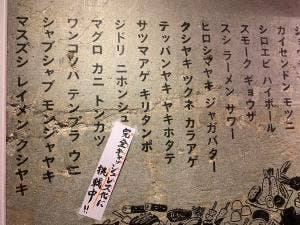 カイセンドン モツニ
シロエビ ハイボール
スモーク ギョウザ
スシ ラーメン サワー
ヒロシマヤキ ジャガバター
タシヤキ ツクネ カラアゲ
テッパンヤキ ヤキホタテ
サツマアゲ キリタンポ
シドリ ニホンシュ
マグロ カニ トンカツ
ワンコソバ テンプラ ウニ
シャブシャブ モンジャヤキ
マスズシ レイメン クシヤキ
完全キャッシュレス化に
挑戦中!!